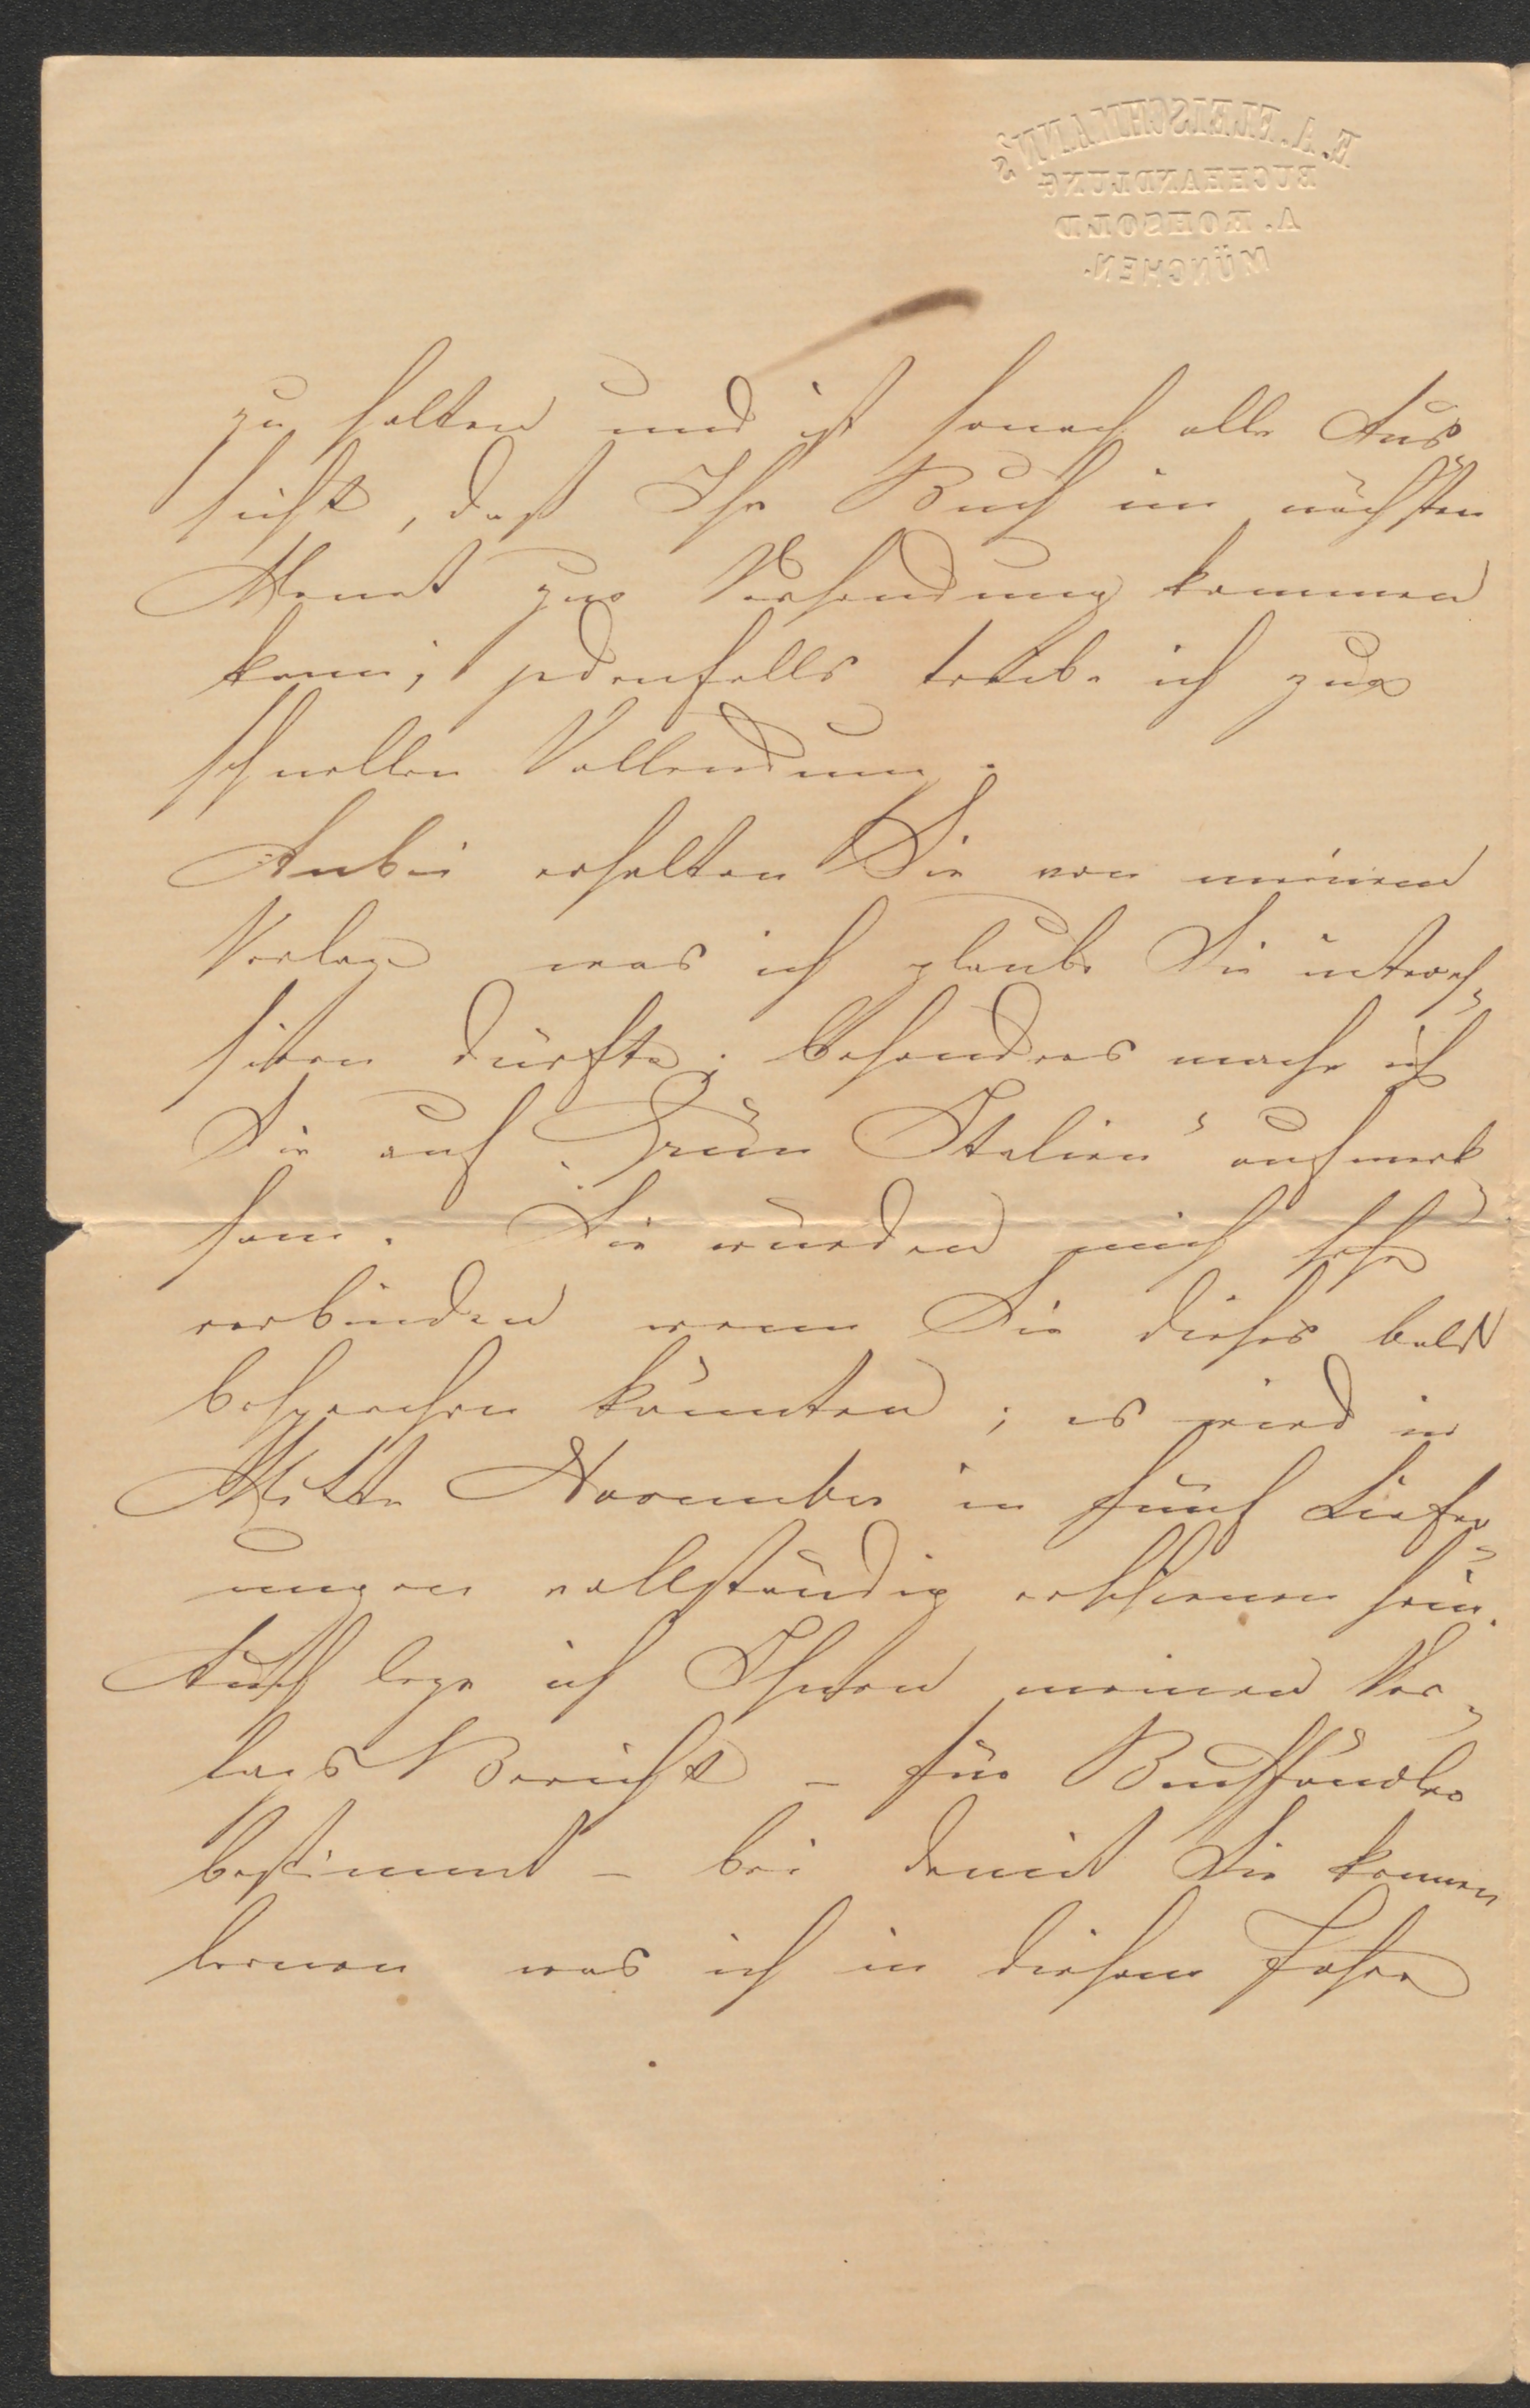 E. A. FLEISCHMANN'S
BUCHHANDLUNG
A. ROHSOLD
MÜNCHEN.
zu halten und ist sonach alle Aus-
sicht, daß Ihr Buch im nächsten
Monat zur Versendung kommen
kann; jedenfalls treibe ich zur
schnellen Vollendung.
Anbei erhalten Sie von meinem
Verlag was ich glaube Sie interes-
siren dürfte; besonders mache ich
Sie auf „Grün Italien" aufmerk
sam. Sie würden mich sehr
verbinden wenn Sie dieses bald
besprechen könnten; es wird in
Mitte November in fünf Liefer-
ungen vollständig erschienen sein.
Auch lege ich Ihnen meinen Ver-
lags Bericht – für Buchhändler
bestimmt – bei damit Sie kennen
lernen was ich in diesem Jahre